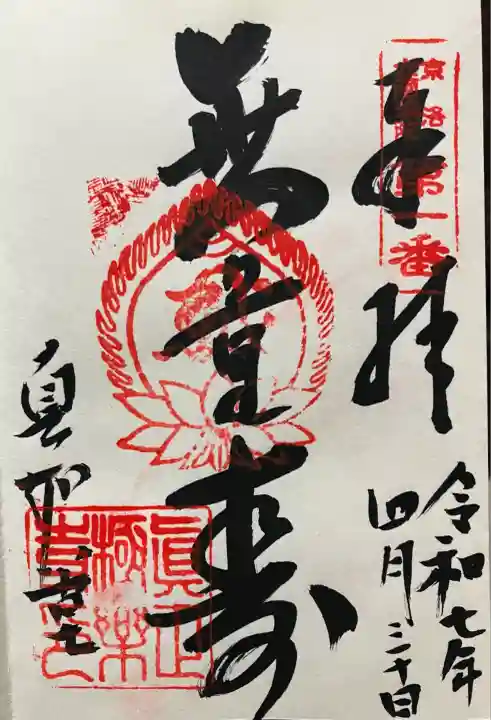 奉拝
令和七年
四月三十日
無量寿
真如堂
京洛
第一番
真正
極楽